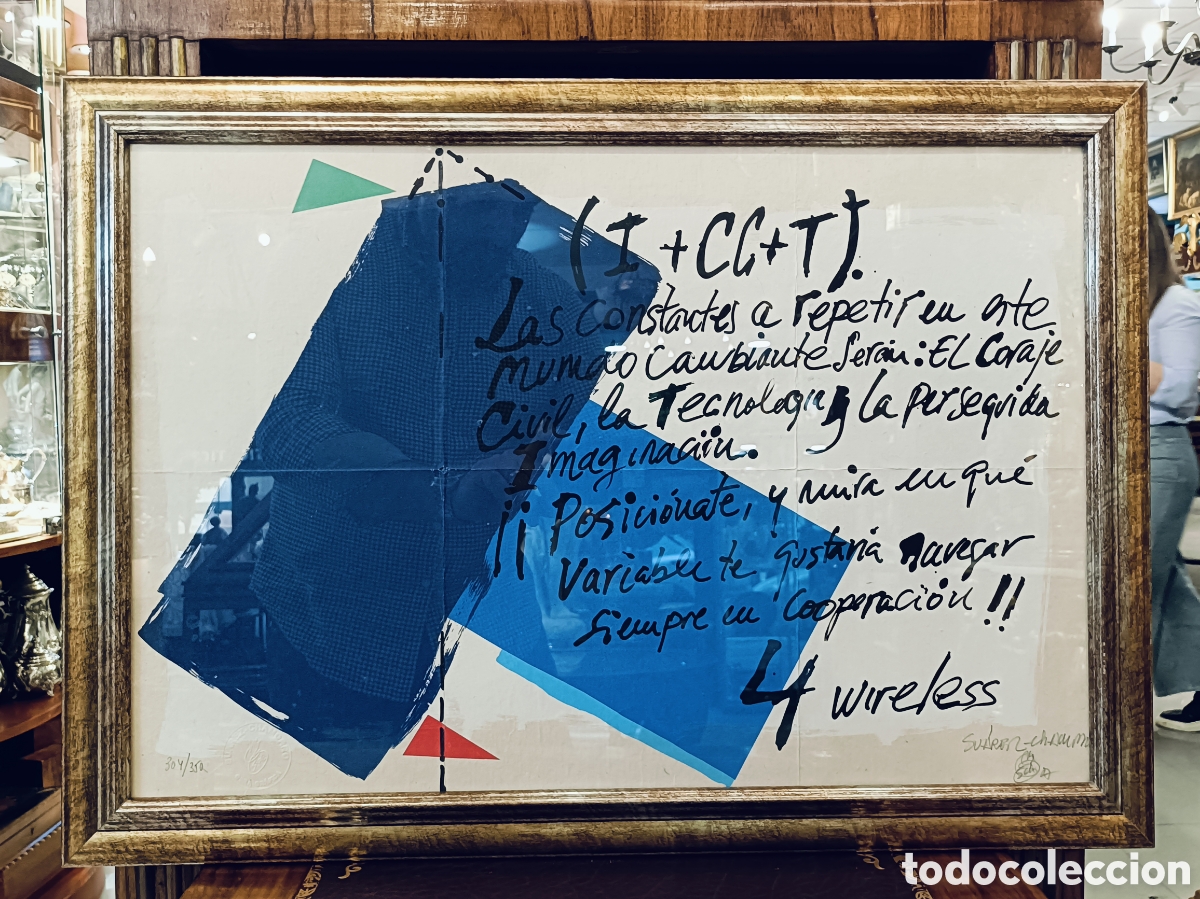 (I + CC + T).
Las constantes a repetir en este
mundo cambiante serán: EL Coraje
Civil, la Tecnología y La perseguida
Imaginación.
¡¡ Posiciónate, y mira en qué
Variable te gustaría navegar
siempre en cooperación!!
4 wireless
304/350
todocoleccion